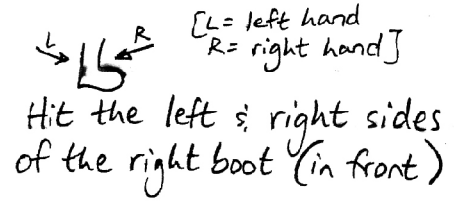 L R [L= left hand
R= right hand]
Hit the left & right sides
of the right boot (in front)